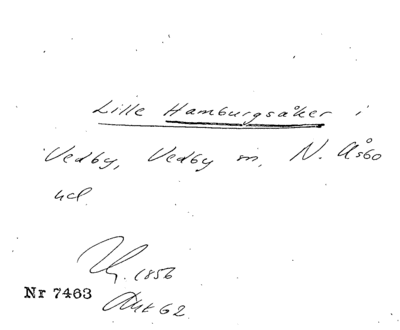 Lille Hamburgsåker i
Vedby, Vedby sn, N. Åsbo
hd
1856
Nr 7463
Akt 62